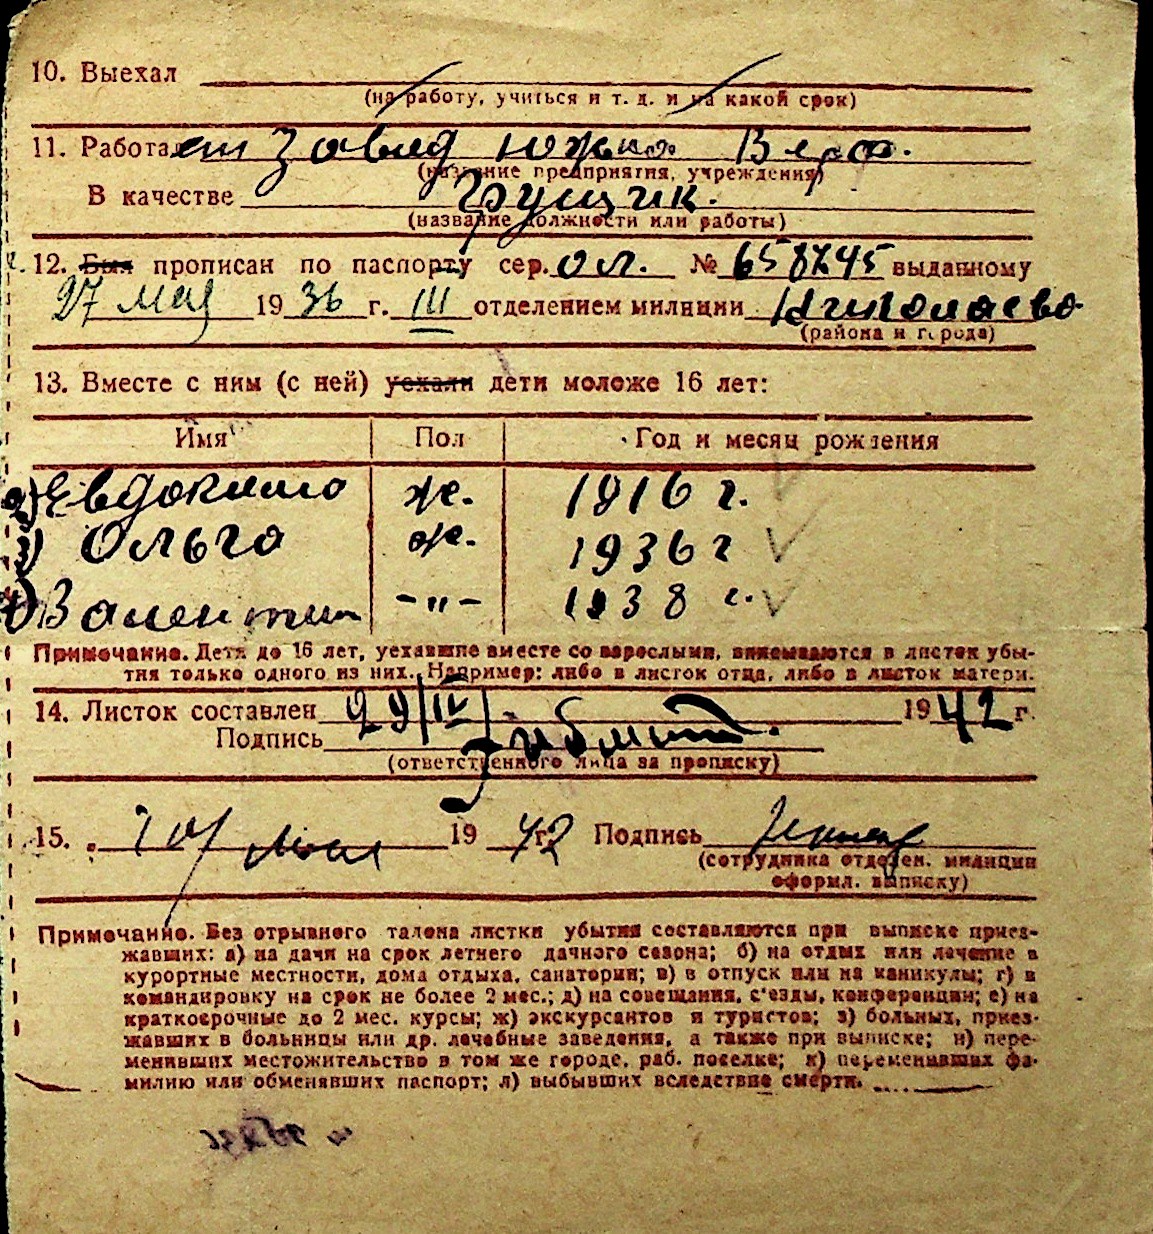 10. Выехал
(на работу, учиться и т. д. и на какой срок)
11. Работает Завод Южная Верф.
(название предприятия, учреждения)
В качестве грущик.
(название должности или работы)
12. Был прописан по паспорту сер. ол. № 658745 выданному
27 мая 1936 г. III отделением милиции Николаево
(района и города)
13. Вместе с ним (с ней) уехали дети моложе 16 лет:
Имя Пол Год и месяц рождения
2) Евдокимо ж. 1916 г.
3) Ольго ж. 1936 г
4) Валентин -"- 1938 г.
Примечание. Дети до 16 лет, уехавшие вместе со взрослыми, вписываются в листок убы-
тия только одного из них. Например: либо в листок отца, либо в листок матери.
14. Листок составлен 29/IV 1942 г.
Подпись
(ответственного лица за прописку)
15. мая 1942 г. Подпись
(сотрудника отделен. милиции
оформл. выписку)
Примечание. Без отрывного талона листки убытия составляются при выписке приез-
жавших: а) на дачи на срок летнего дачного сезона; б) на отдых или лечение в
курортные местности, дома отдыха, санатории; в) в отпуск или на каникулы; г) в
командировку на срок не более 2 мес.; д) на совещания, с'езды, конференции; е) на
краткосрочные до 2 мес. курсы; ж) экскурсантов и туристов; з) больных, приез-
жавших в больницы или др. лечебные заведения, а также при выписке; и) пере-
менивших местожительство в том же городе, раб. поселке; к) переменивших фа-
милию или обменявших паспорт; л) выбывших вследствие смерти.